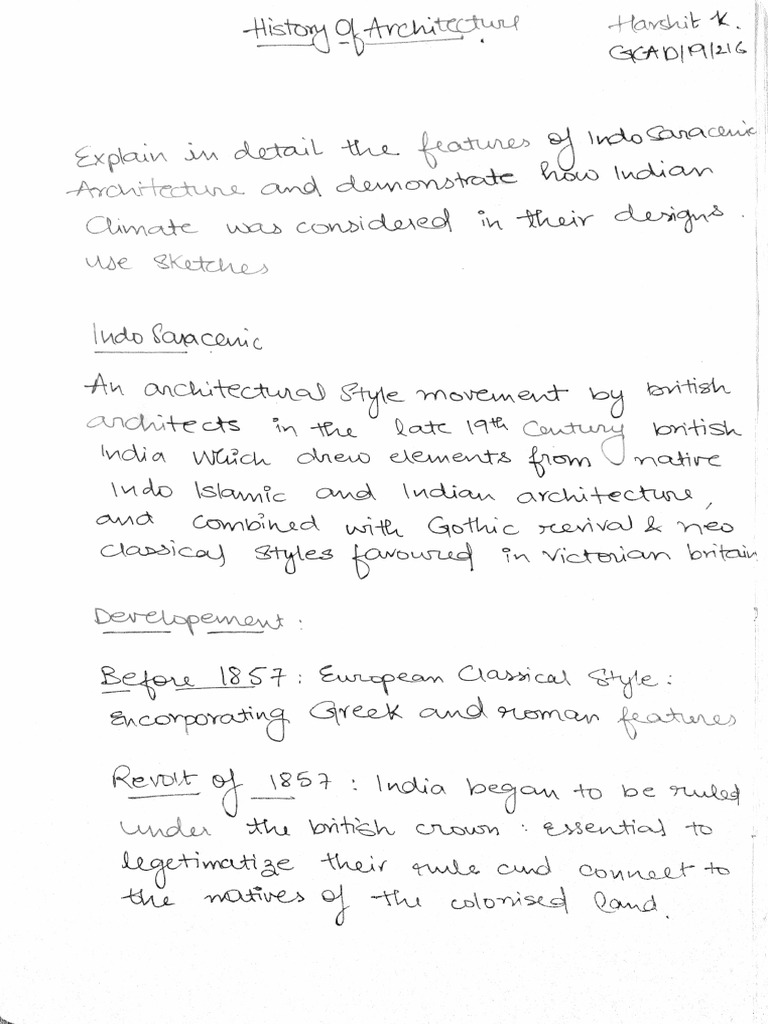 History Of Architecture.
Harshit K.
GCAD/19/216
Explain in detail the features of Indo Saracenic
Architecture and demonstrate how Indian
Climate was considered in their designs.
use sketches
Indo Saracenic
An architectural style movement by british
architects in the late 19th Century british
India which drew elements from native
Indo Islamic and Indian architecture,
and combined with Gothic revival & neo
classical styles favoured in victorian britain
Developement:
Before 1857: European Classical Style:
Encorporating Greek and roman features
Revolt of 1857: India began to be ruled
under the british crown: essential to
legetimatize their rule and connect to
the natives of the colonised land.